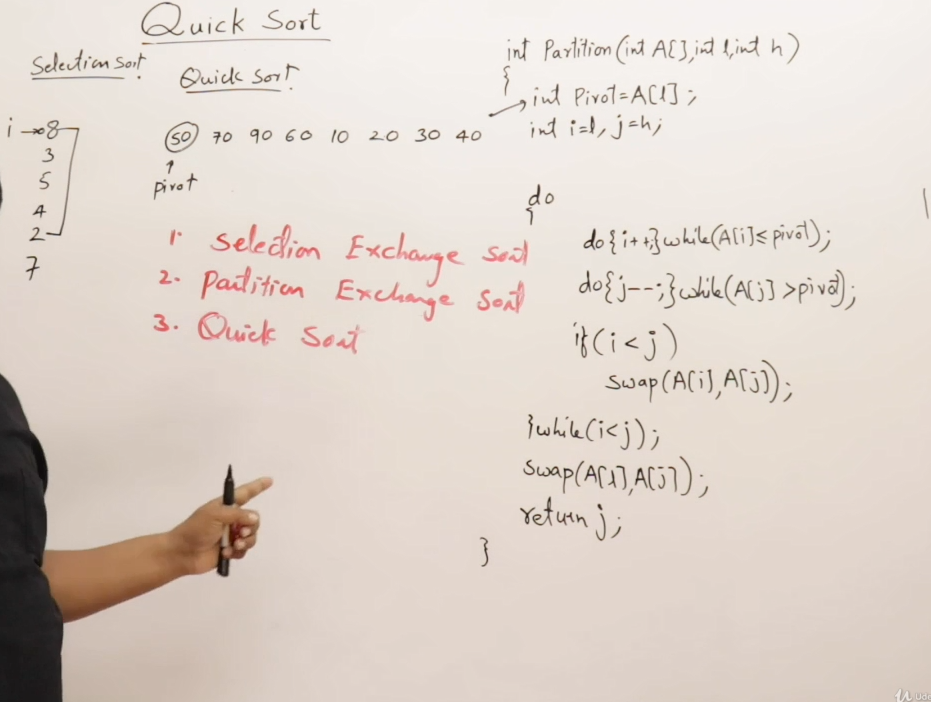 Quick Sort
Selection Sort
i → 8
3
5
4
2
7
Quick Sort
50 70 90 60 10 20 30 40
pivot
1. Selection Exchange Sort
2. Partition Exchange Sort
3. Quick Sort
int Partition(int A[], int l, int h)
{
int Pivot=A[l];
int i=l, j=h;
do
{
do{i++;}while(A[i]≤pivot);
do{j--;}while(A[j]>pivot);
if(i<j)
swap(A[i],A[j]);
}while(i<j);
swap(A[l],A[j]);
return j;
}